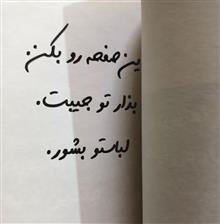 ین صفحه رو بکن.
بذار تو جیبت.
لباستو بشور.